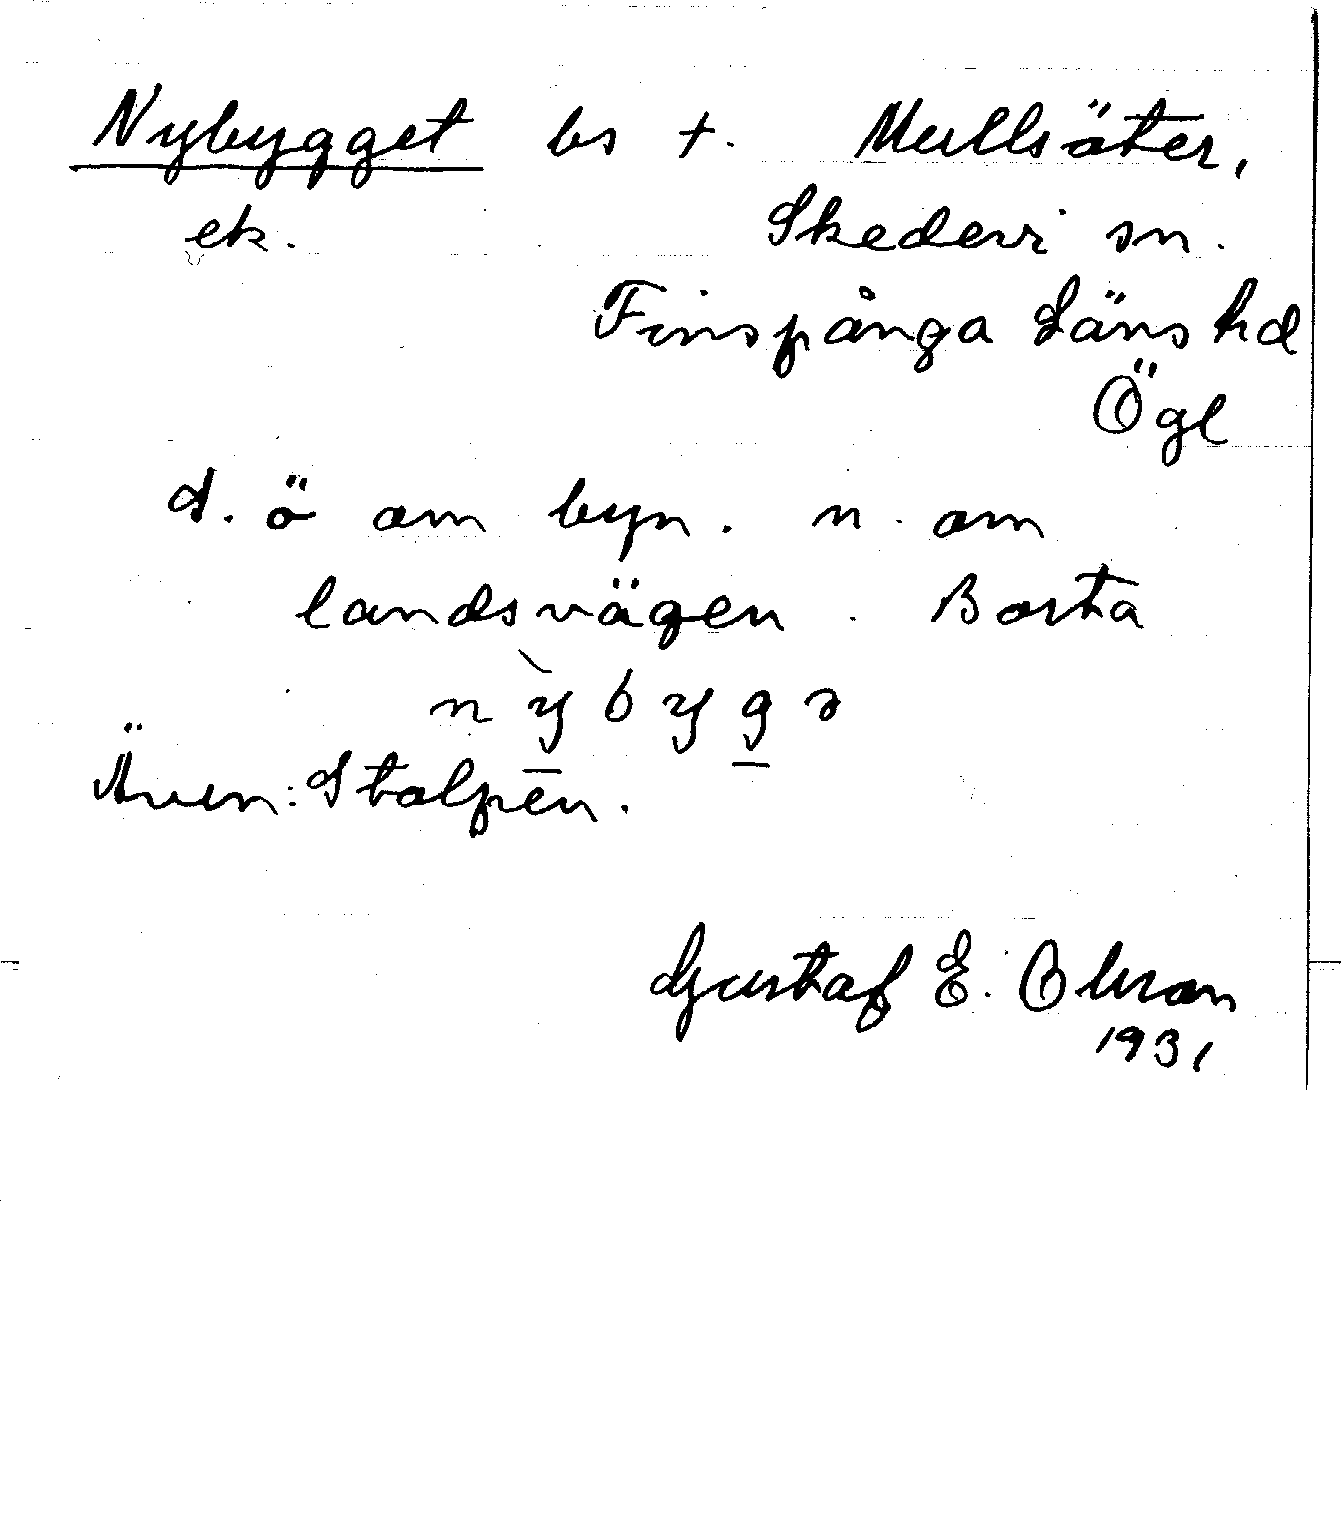 Nybygget bs t. Mullsäter,
ek. Skedevi sn.
Finspånga Läns hd
Ögl
d. ö om byn. n. om
landsvägen. Borta
nỳbygə
Även: Stolpen.
Gustaf E.
1931